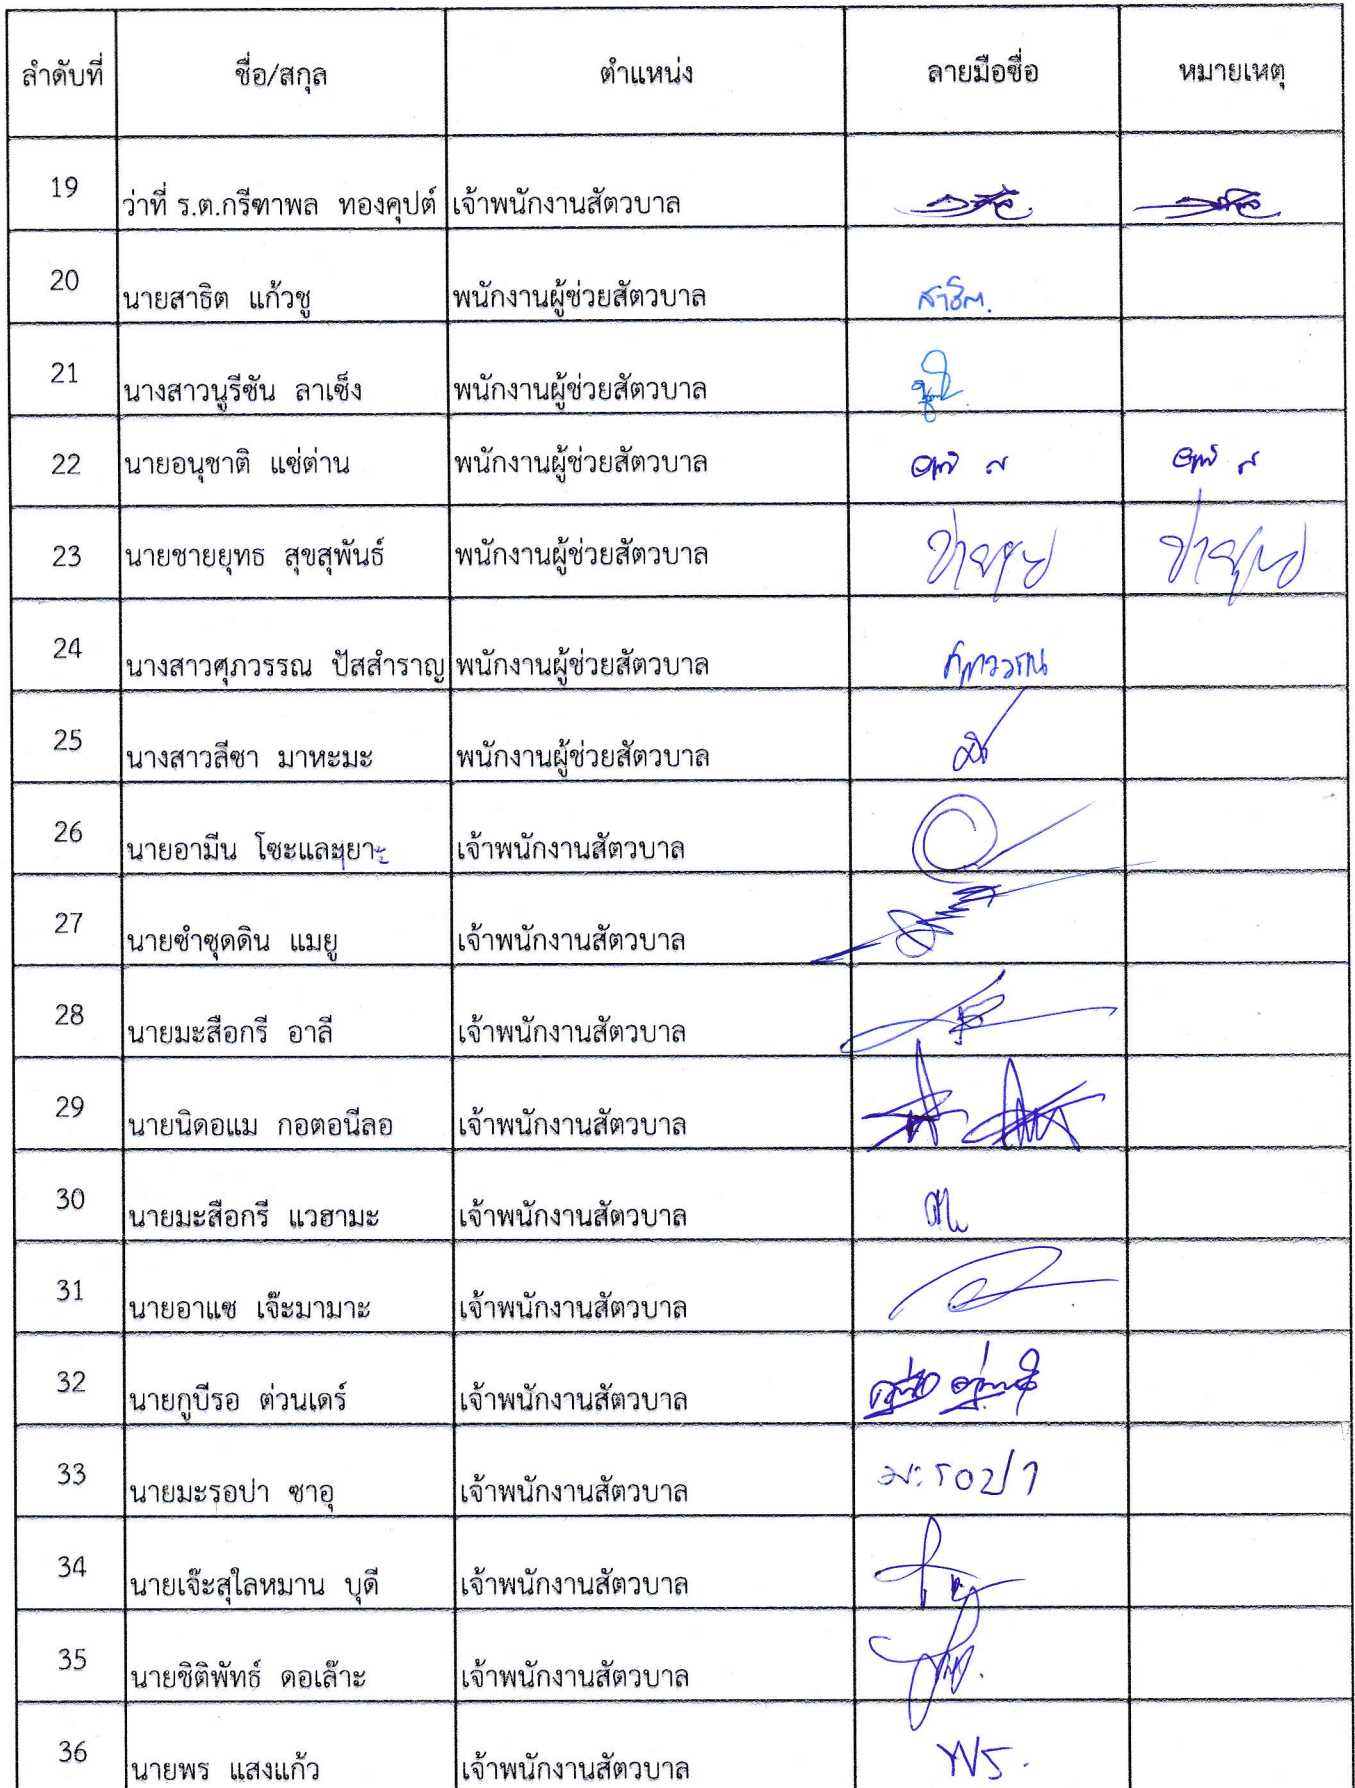 ลำดับที่ ชื่อ/สกุล ตำแหน่ง ลายมือชื่อ หมายเหตุ
19 ว่าที่ ร.ต.กรีฑาพล ทองคุปต์ เจ้าพนักงานสัตวบาล
20 นายสาธิต แก้วชู พนักงานผู้ช่วยสัตวบาล สาธิต.
21 นางสาวนูรีซัน ลาเซ็ง พนักงานผู้ช่วยสัตวบาล
22 นายอนุชาติ แซ่ต่าน พนักงานผู้ช่วยสัตวบาล
23 นายชายยุทธ สุขสุพันธ์ พนักงานผู้ช่วยสัตวบาล
24 นางสาวศุภวรรณ ปัสสำราญ พนักงานผู้ช่วยสัตวบาล ศุภวรรณ
25 นางสาวลีซา มาหะมะ พนักงานผู้ช่วยสัตวบาล
26 นายอามีน เจ้าพนักงานสัตวบาล
27 นายซำซุดดิน แมยู เจ้าพนักงานสัตวบาล
28 นายมะสือกรี อาลี เจ้าพนักงานสัตวบาล
29 นายนิดอแม กอตอนีลอ เจ้าพนักงานสัตวบาล
30 นายมะสือกรี แวฮามะ เจ้าพนักงานสัตวบาล
31 นายอาแซ เจ๊ะมามาะ เจ้าพนักงานสัตวบาล
32 นายกูบีรอ ต่วนเดร์ เจ้าพนักงานสัตวบาล
33 นายมะรอปา ซาอุ เจ้าพนักงานสัตวบาล มะรอปา
34 นายเจ๊ะสุใลหมาน บุดี เจ้าพนักงานสัตวบาล
35 นายชิติพัทธ์ ดอเล๊าะ เจ้าพนักงานสัตวบาล
36 นายพร แสงแก้ว เจ้าพนักงานสัตวบาล พร.